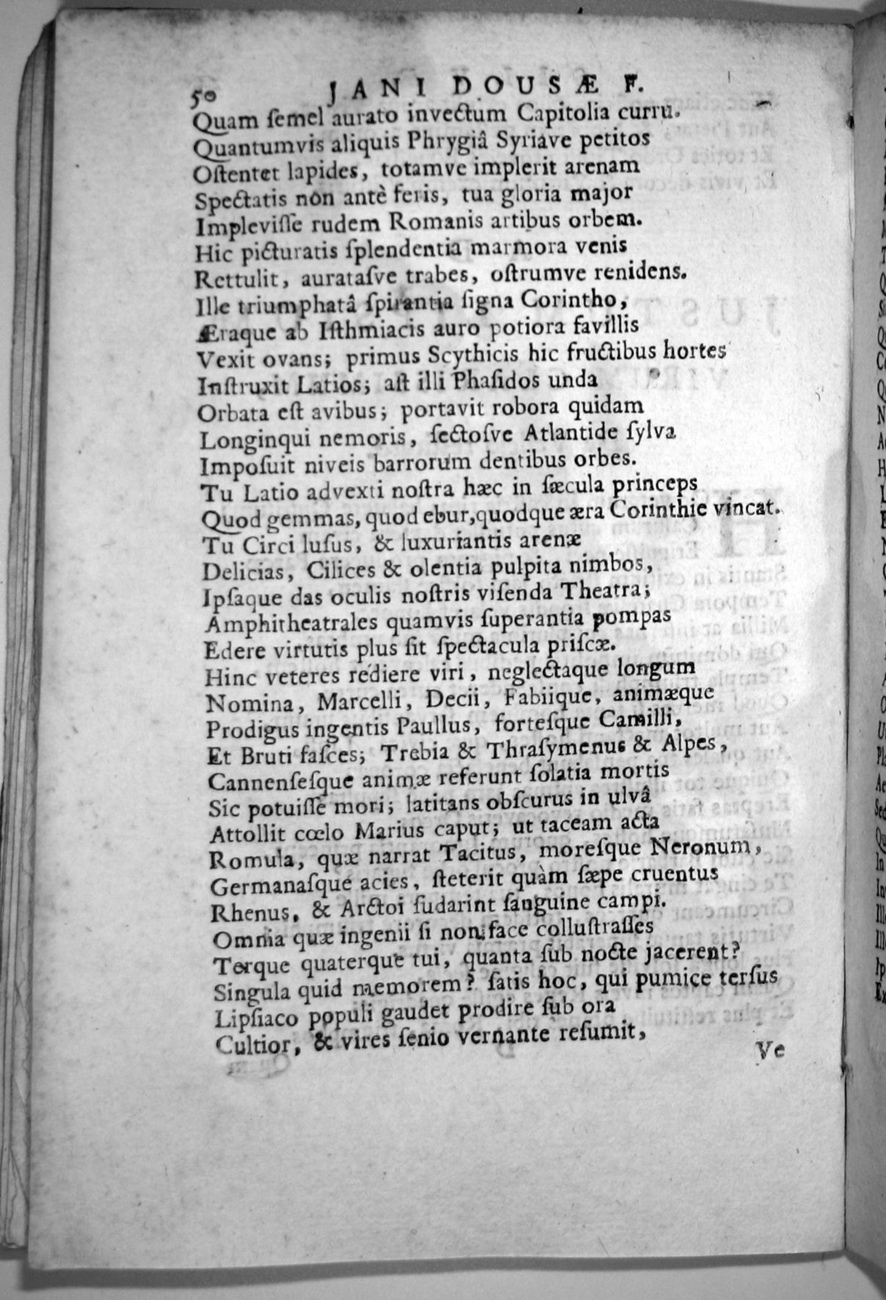 50 JANI DOUSÆ F.
Quam ſemel aurato invectum Capitolia curru.
Quantumvis aliquis Phrygiâ Syriave petitos
Oſtentet lapides, totamve implerit arenam
Spectatis non antè feris, tua gloria major
Impleviſſe rudem Romanis artibus orbem.
Hic picturatis ſplendentia marmora venis
Rettulit, aurataſve trabes, oſtrumve renidens.
Ille triumphatâ ſpirantia ſigna Corintho,
Æraque ab Iſthmiacis auro potiora favillis
Vexit ovans; primus Scythicis hic fructibus hortes
Inſtruxit Latios; aſt illi Phaſidos unda
Orbata eſt avibus; portavit robora quidam
Longinqui nemoris, ſectoſve Atlantide ſylva
Impoſuit niveis barrorum dentibus orbes.
Tu Latio advexti noſtra hæc in ſæcula princeps
Quod gemmas, quod ebur,quodque æra Corinthie vincat.
Tu Circi luſus, & luxuriantis arenæ
Delicias, Cilices & olentia pulpita nimbos,
Ipſaque das oculis noſtris viſenda Theatra;
Amphitheatrales quamvis ſuperantia pompas
Edere virtutis plus ſit ſpectacula priſcæ.
Hinc veteres rediere viri, neglectaque longum
Nomina, Marcelli, Decii, Fabiique, animæque
Prodigus ingentis Paullus, forteſque Camilli,
Et Bruti faſces; Trebia & Thraſymenus & Alpes,
Cannenſeſque animæ referunt ſolatia mortis
Sic potuiſſe mori; latitans obſcurus in ulvâ
Attollit cœlo Marius caput; ut taceam acta
Romula, quæ narrat Tacitus, moreſque Neronum,
Germanaſque acies, ſteterit quàm ſæpe cruentus
Rhenus, & Arctoi ſudarint ſanguine campi.
Omnia quæ ingenii ſi non face colluſtraſſes
Terque quaterque tui, quanta ſub nocte jacerent?
Singula quid memorem? ſatis hoc, qui pumice terſus
Lipſiaco populi gaudet prodire ſub ora
Cultior, & vires ſenio vernante reſumit,
Ve